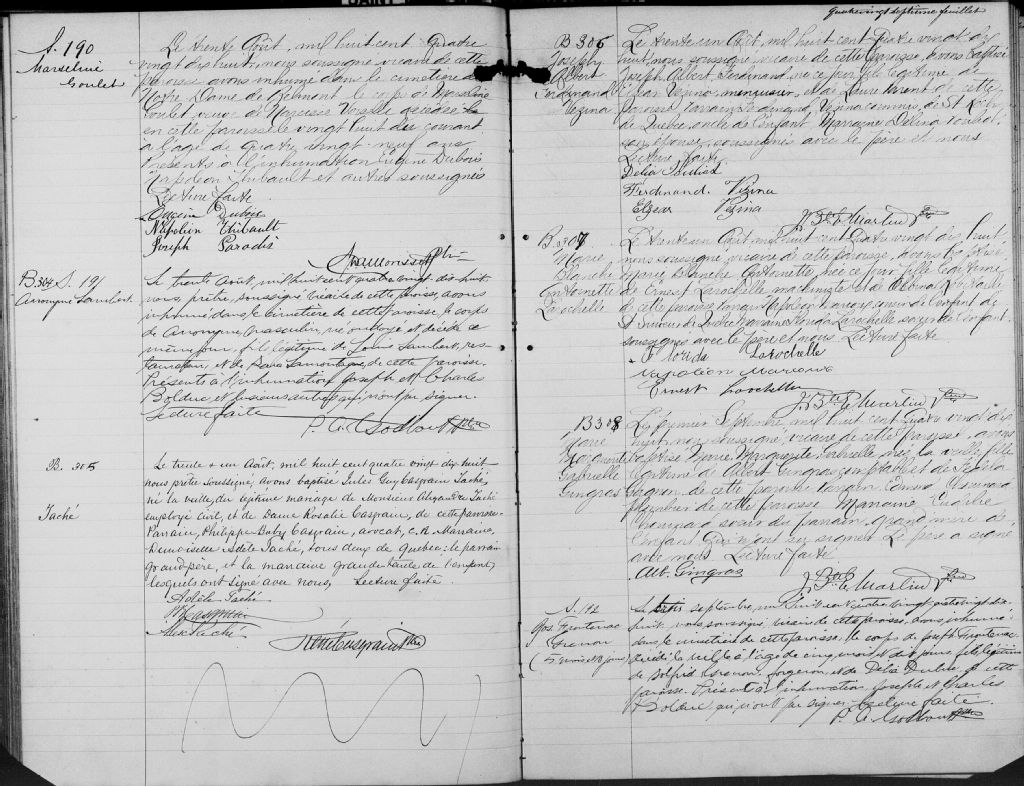 S. 190
Marseline
Goulet
Le trente Août, mil huit cent quatre
vingt dix huit, nous soussigné vicaire de cette
paroisse avons inhumé dans le cimetière de
Notre Dame de Belmont le corps de Marseline
Goulet veuve de Narcisse décédée
en cette paroisse le vingt huit du courant
à l'age de quatre vingt neuf ans
Présents à l'inhumation Eugène Dubois
Napoléon Thibault et autres soussignés
Lecture faite
Eugène Dubois
Napoleon Thibault
Joseph Paradis
B. 304 S. 191
Anonyme Lambert
Le trente Août, mil huit cent quatre vingt dix huit,
nous, prêtre, soussigné vicaire de cette paroisse, avons
inhumé dans le cimetière de cette paroisse, le corps
de Anonyme masculin, né ondoyé et décédé ce
même jour, fils légitime de Louis Lambert, res-
taurateur, et de Lamontagne de cette paroisse.
Présents à l'inhumation Joseph et Charles
Bolduc et plusieurs autres qui n'ont pu signer.
Lecture faite
P. C. Godbout Ptre
B. 305
Taché
Le trente & un Août, mil huit cent quatre vingt-dix-huit
nous prêtre soussigné, avons baptisé Jules Guy Casgrain Taché,
né la veille, du légitime mariage de Monsieur Alexandre Taché
employé civil, et de Dame Rosalie Casgrain, de cette paroisse
Parrain, Philippe Baby Casgrain, avocat, c.R. Marraine,
Demoiselle Adèle Taché, tous deux de Quebec: le parrain
grand-père, et la marraine grande-tante de l'enfant,
lesquels ont signé avec nous, Lecture faite.
Adèle Taché
Casgrain
Alex Taché
René Casgrain Ptre
Quatrevingt septième feuillet
B 306
Joseph
Albert
Ferdinand
Vezina
Le trente un Août, mil huit cent quatre vingt dix
huit, nous soussigné, vicaire de cette paroisse, avons baptisé
Joseph Albert Ferdinand né ce jour fils légitime de
Elzéar Vezina, menuisier, et de Laure de cette
paroisse Parrain Ferdinand Vezina commis, de St Roch
de Quebec, oncle de l'enfant Marraine Delia
son épouse, soussignés avec le père et nous
Lecture faite
Delia
Ferdinand Vezina
Elzear Vezina
J. Bte Martin Ptre
B. 307
Marie
Blanche
Antoinette
Larochelle
Le trente un Août mil huit cent quatre vingt dix huit
nous soussigné, vicaire de cette paroisse, avons baptisé
Marie Blanche Antoinette, née ce jour fille légitime
de Ernest Larochelle machiniste et de Albina
de cette paroisse Parrain Napoléon de l'enfant de
St Sauveur de Quebec Marraine Florida Larochelle soeur de l'enfant
soussignés avec le père et nous Lecture faite
Florida Larochelle
Napoléon
Ernest Larochelle
J. Bte Martin Ptre
B 308
Marie
Marguerite
Gabrielle
Gingras
Le premier Septembre mil huit cent quatre vingt dix
huit, nous soussigné, vicaire de cette paroisse, avons
baptisé Marie Marguerite Gabrielle née la veille fille
légitime de Albert Gingras comptable et de
Gagnon de cette paroisse Parrain
plombier de cette paroisse Marraine
soeur du parrain, grand mère de
l'enfant qui n'ont su signer Le père a signé
avec nous Lecture faite
Alb. Gingras
J. Bte Martin Ptre
S. 192
Jos. Frontenac
Grenon
(5 mois & jours)
Le septembre, mil huit cent quatre vingt dix
huit, nous soussigné, vicaire de cette paroisse, avons inhumé
dans le cimetière de cette paroisse, le corps de Joseph Frontenac
décédé la veille à l'âge de cinq mois et jours, fils légitime
de Grenon, forgeron, et de Délia Dubé de cette
paroisse. Présents à l'inhumation, Joseph et Charles
Bolduc qui n'ont pu signer. Lecture faite.
P. C. Godbout Ptre